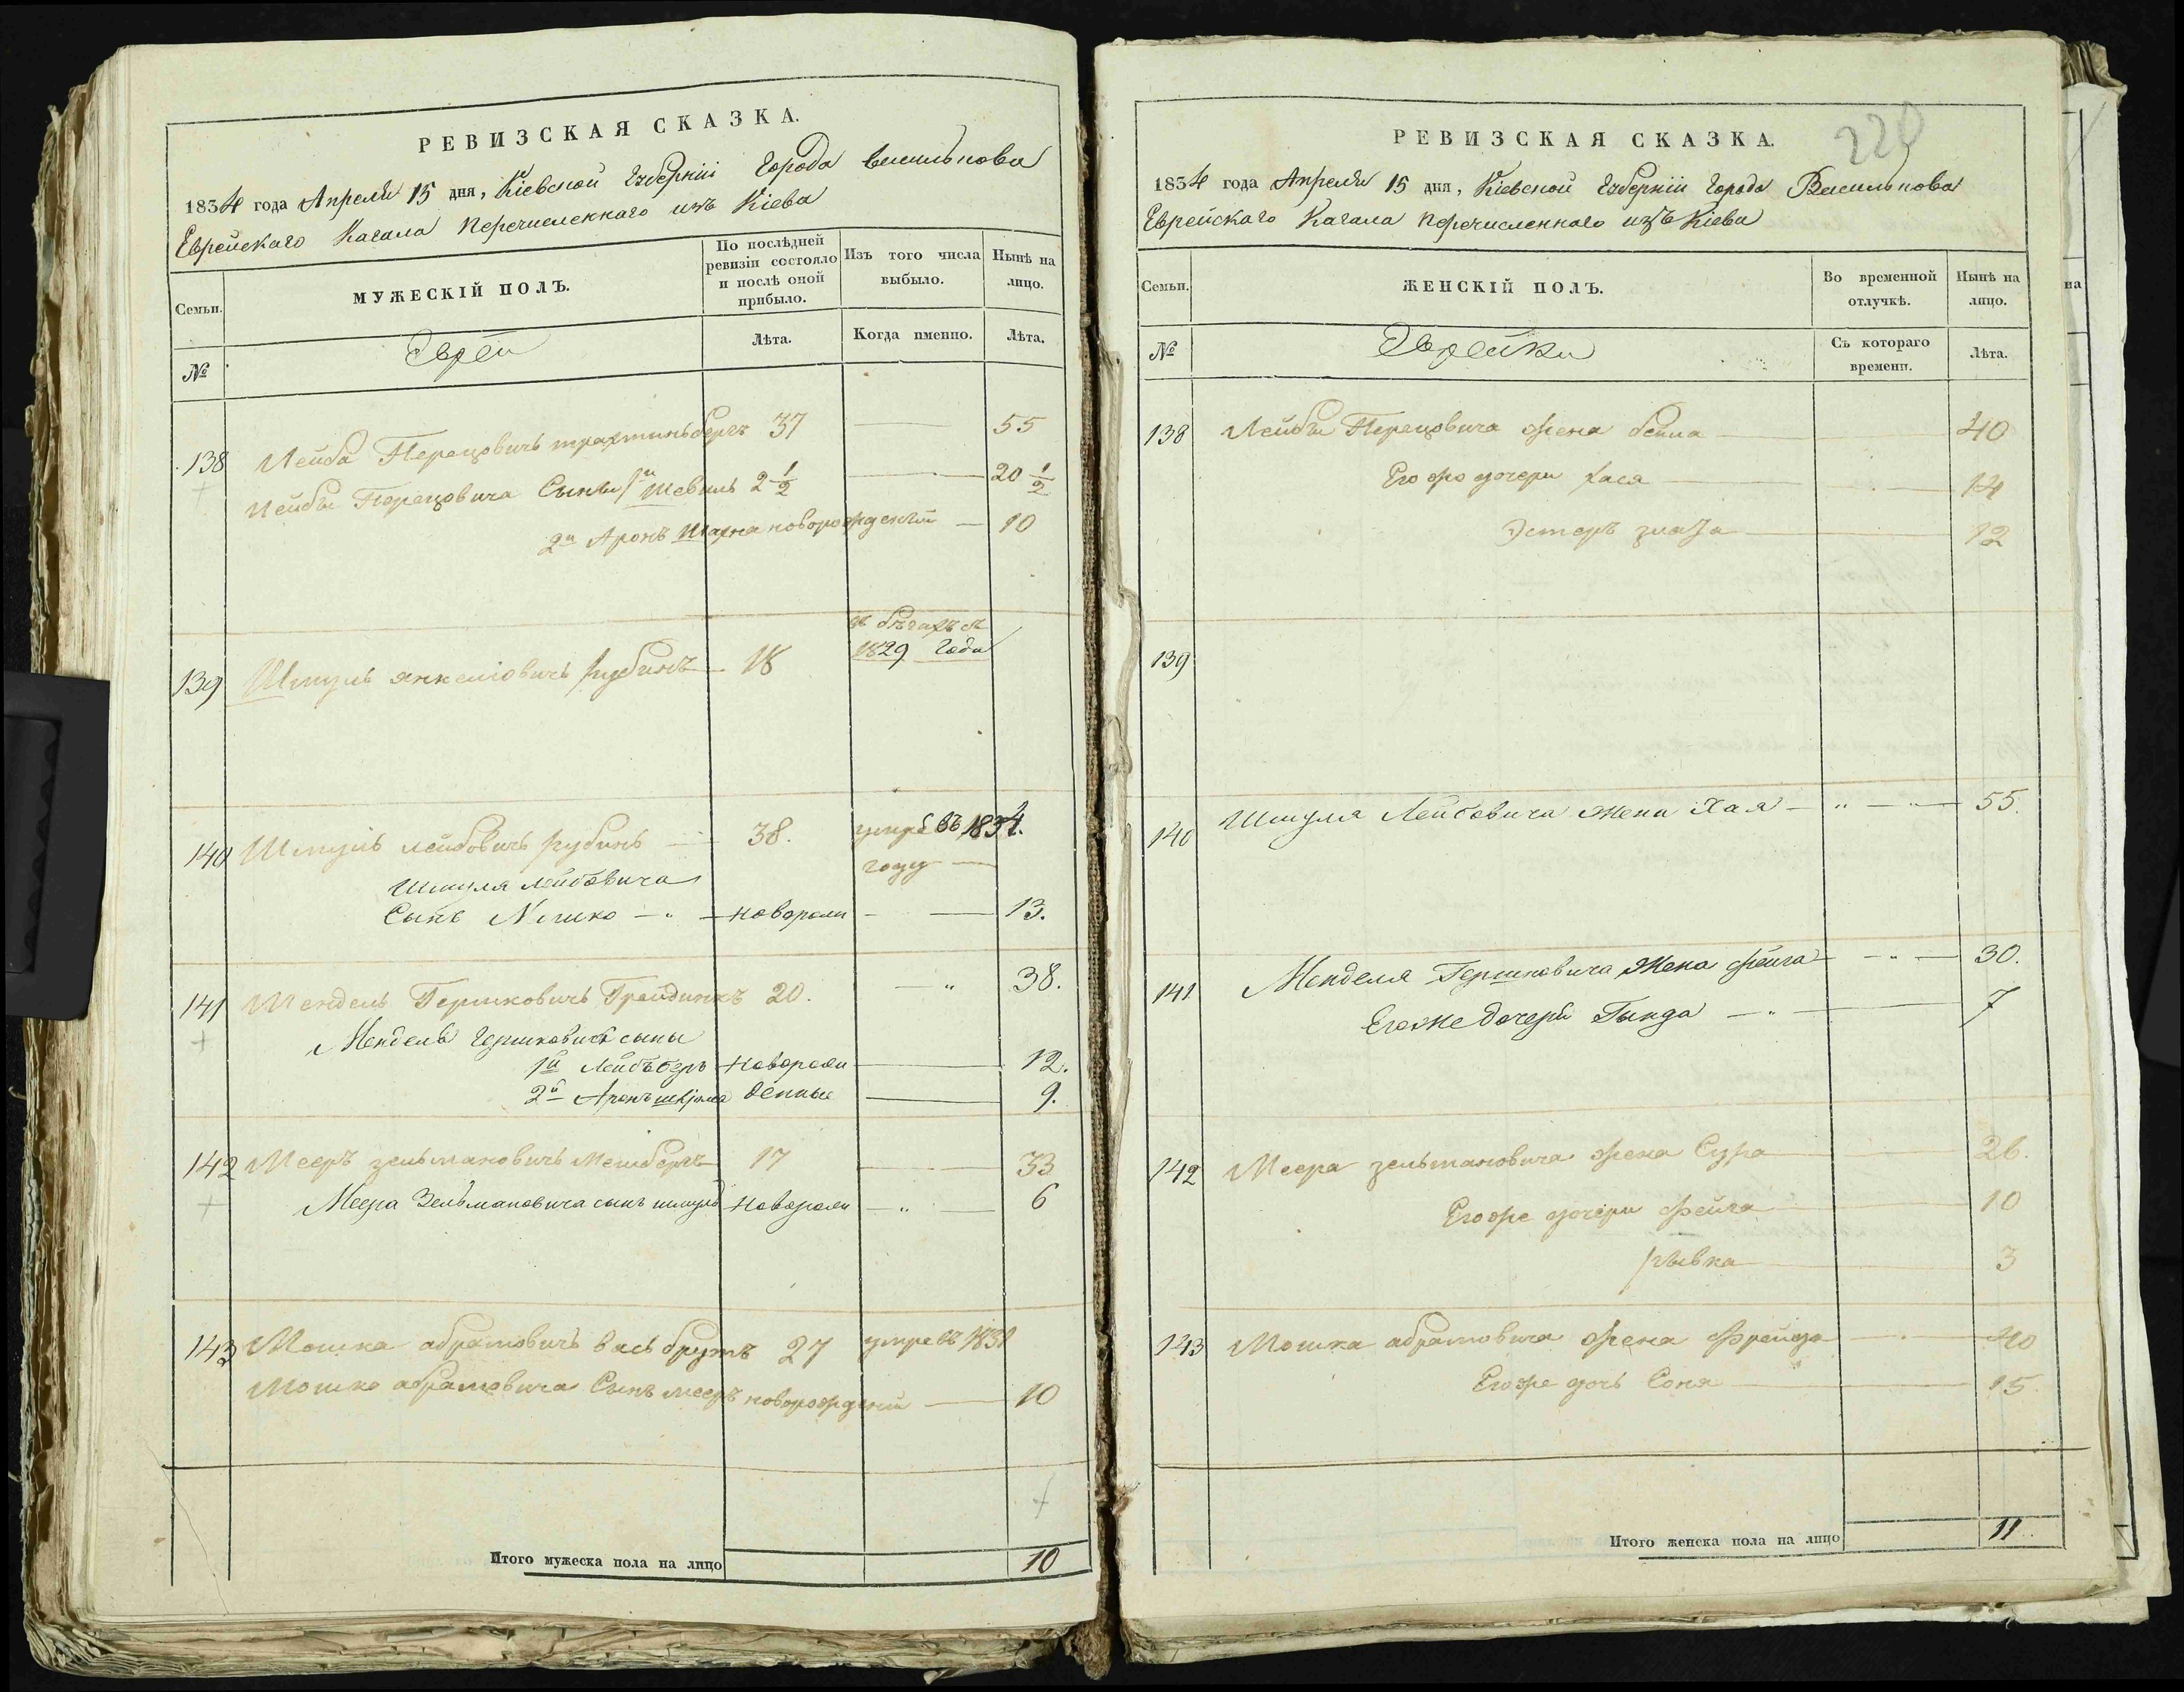 РЕВИЗСКАЯ СКАЗКА.
1834 года Апреля 15 дня, Кіевской Губерніи Города Василькова
Еврейскаго Кагала Перечисленнаго изъ Кіева
Семьи.
МУЖЕСКІЙ ПОЛЪ.
По послѣдней ревизіи состояло и послѣ оной прибыло.
Изъ того числа выбыло.
Нынѣ на лицо.
№
Евреи
Лѣта.
Когда именно.
Лѣта.
138 Лейба Перецовичъ 37 55
Лейбы Перецовича Сыны 1й Шевель 2 1/2 20 1/2
2й Аронъ новорожденый 10
139 Шмуль Янкеліовичъ Рубинъ 18 въ бѣгахъ съ 1829 года
140 Шмуль Лейбовичъ Рубинъ 38. умре въ 1834. году
Шмуля Лейбовича
Сынъ Ицко новорожн 13.
141 Мендель Гершковичъ 20. 38.
Мендель Гершковича сыны
1й Лейбъ новорожн 12.
2й Аронъ денные 9.
142 Мееръ Зельмановичъ 17 33
Меера Зельмановича сынъ Шмуль новорожн 6
143 Мошка Абрамовичъ 27 умре въ 1831
Мошко Абрамовича Сынъ Мееръ новорожденый 10
Итого мужеска пола на лицо 10
220
РЕВИЗСКАЯ СКАЗКА.
1834 года Апреля 15 дня, Кіевской Губерніи Города Василькова
Еврейскаго Кагала Перечисленнаго изъ Кіева
Семьи.
ЖЕНСКІЙ ПОЛЪ.
Во временной отлучкѣ.
Нынѣ на лицо.
№
Эврейки
Съ котораго времени.
Лѣта.
138 Лейбы Перецовича жена Бейла 40
Его же дочери Хася 14
Эстеръ Злата 12
139
140 Шмуля Лейбовича Жена Хая 55.
141 Менделя Гершковича Жена Фейга 30.
Егоже дочери Гында 7
142 Меера Зельмановича жена Сура 26.
Егоже дочери Фейга 10
Рывка 3
143 Мошка Абрамовича жена Фрейда 40
Егоже дочь Соня 15.
Итого женска пола на лицо 11.